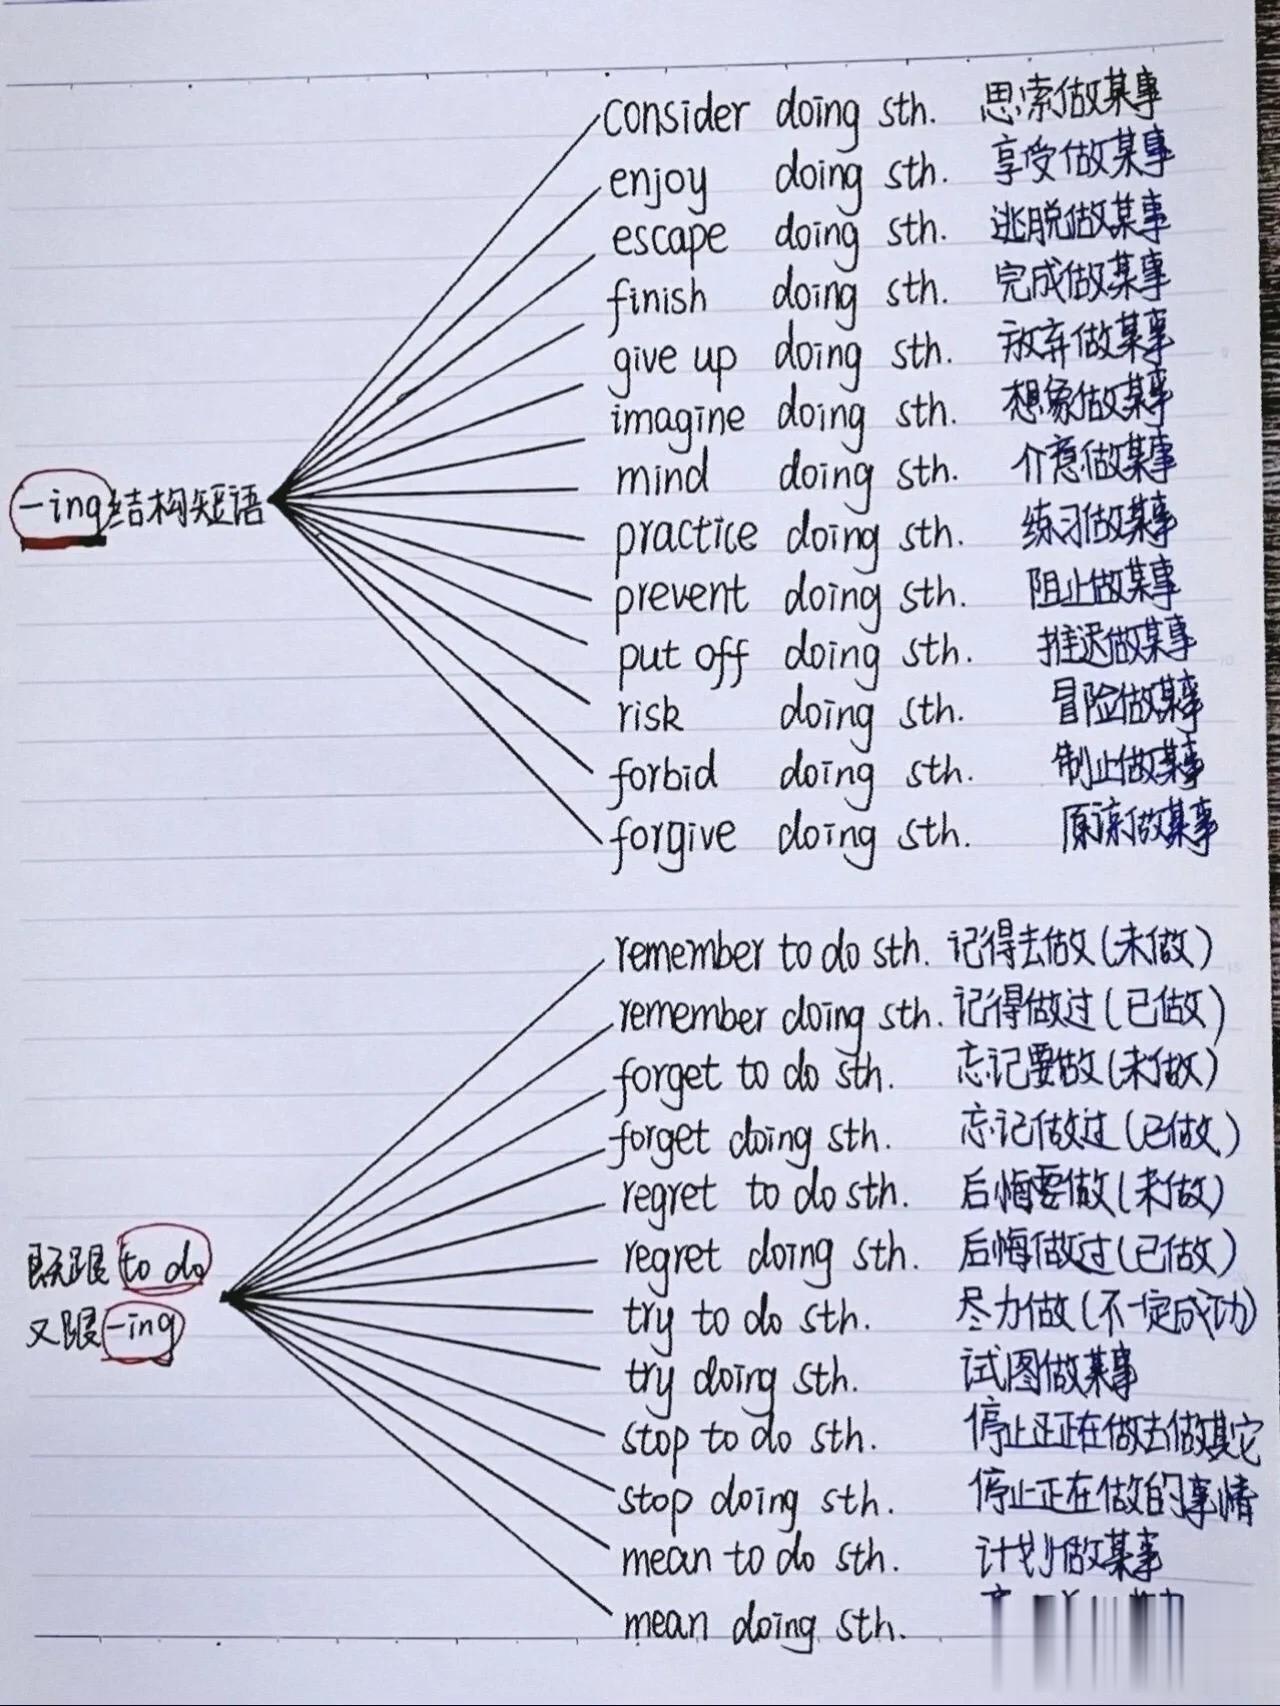 -ing结构短语
consider doing sth. 思索做某事
enjoy doing sth. 享受做某事
escape doing sth. 逃脱做某事
finish doing sth. 完成做某事
give up doing sth. 放弃做某事
imagine doing sth. 想象做某事
mind doing sth. 介意做某事
practice doing sth. 练习做某事
prevent doing sth. 阻止做某事
put off doing sth. 推迟做某事
risk doing sth. 冒险做某事
forbid doing sth. 制止做某事
forgive doing sth. 原谅做某事
既跟 to do
又跟 -ing
remember to do sth. 记得去做(未做)
remember doing sth. 记得做过(已做)
forget to do sth. 忘记要做(未做)
forget doing sth. 忘记做过(已做)
regret to do sth. 后悔要做(未做)
regret doing sth. 后悔做过(已做)
try to do sth. 尽力做(不一定成功)
try doing sth. 试图做某事
stop to do sth. 停止正在做去做其它
stop doing sth. 停止正在做的事情
mean to do sth. 计划做某事
mean doing sth.